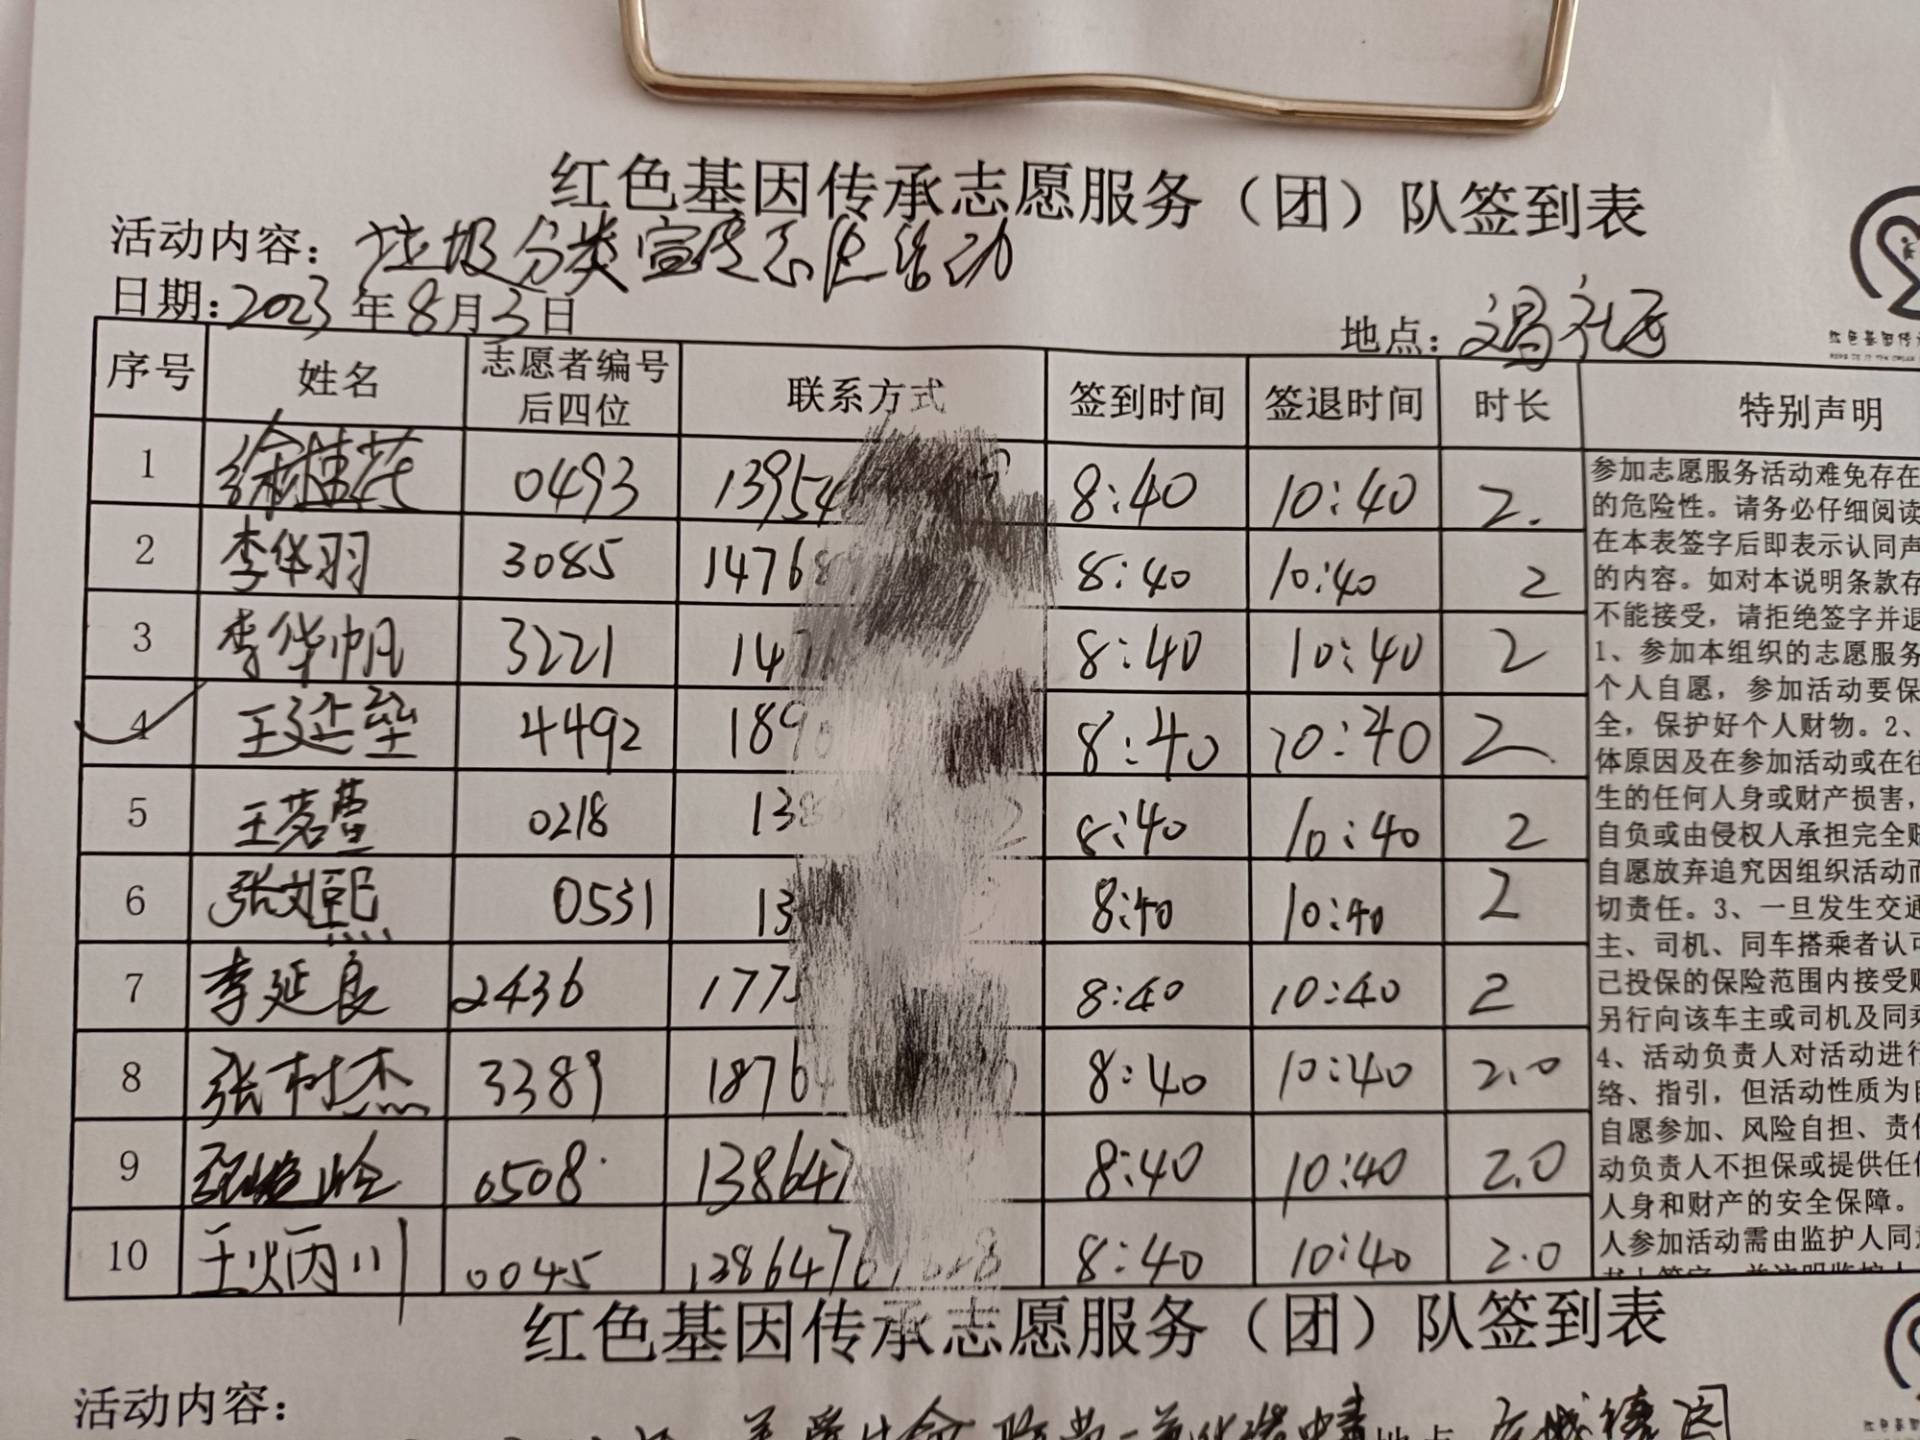 红色基因传承志愿服务（团）队签到表
活动内容：垃圾分类宣传志愿活动
日期：2023年8月3日
地点：
序号 姓名 志愿者编号后四位 联系方式 签到时间 签退时间 时长 特别声明
1 0493 13954 8:40 10:40 2.
2 李华羽 3085 1476 8:40 10:40 2
3 李华帆 3221 14 8:40 10:40 2
4 王延垒 4492 189 8:40 10:40 2
5 王茗萱 0218 13 8:40 10:40 2
6 张文熙 0531 13 8:40 10:40 2
7 李延良 2436 177 8:40 10:40 2
8 张树杰 3389 1876 8:40 10:40 2.0
9 0508 138647 8:40 10:40 2.0
10 王炳川 0045 1386476 8:40 10:40 2.0
参加志愿服务活动难免存在
的危险性。请务必仔细阅读
在本表签字后即表示认同声
的内容。如对本说明条款存
不能接受，请拒绝签字并退
1、参加本组织的志愿服务
个人自愿，参加活动要保
全，保护好个人财物。2、
体原因及在参加活动或在往
生的任何人身或财产损害，
自负或由侵权人承担完全赔
自愿放弃追究因组织活动而
切责任。3、一旦发生交通
主、司机、同车搭乘者认可
已投保的保险范围内接受赔
另行向该车主或司机及同乘
4、活动负责人对活动进行
络、指引，但活动性质为自
自愿参加、风险自担、责任
动负责人不担保或提供任何
人身和财产的安全保障。
人参加活动需由监护人同意
红色基因传承志愿服务（团）队签到表
活动内容：